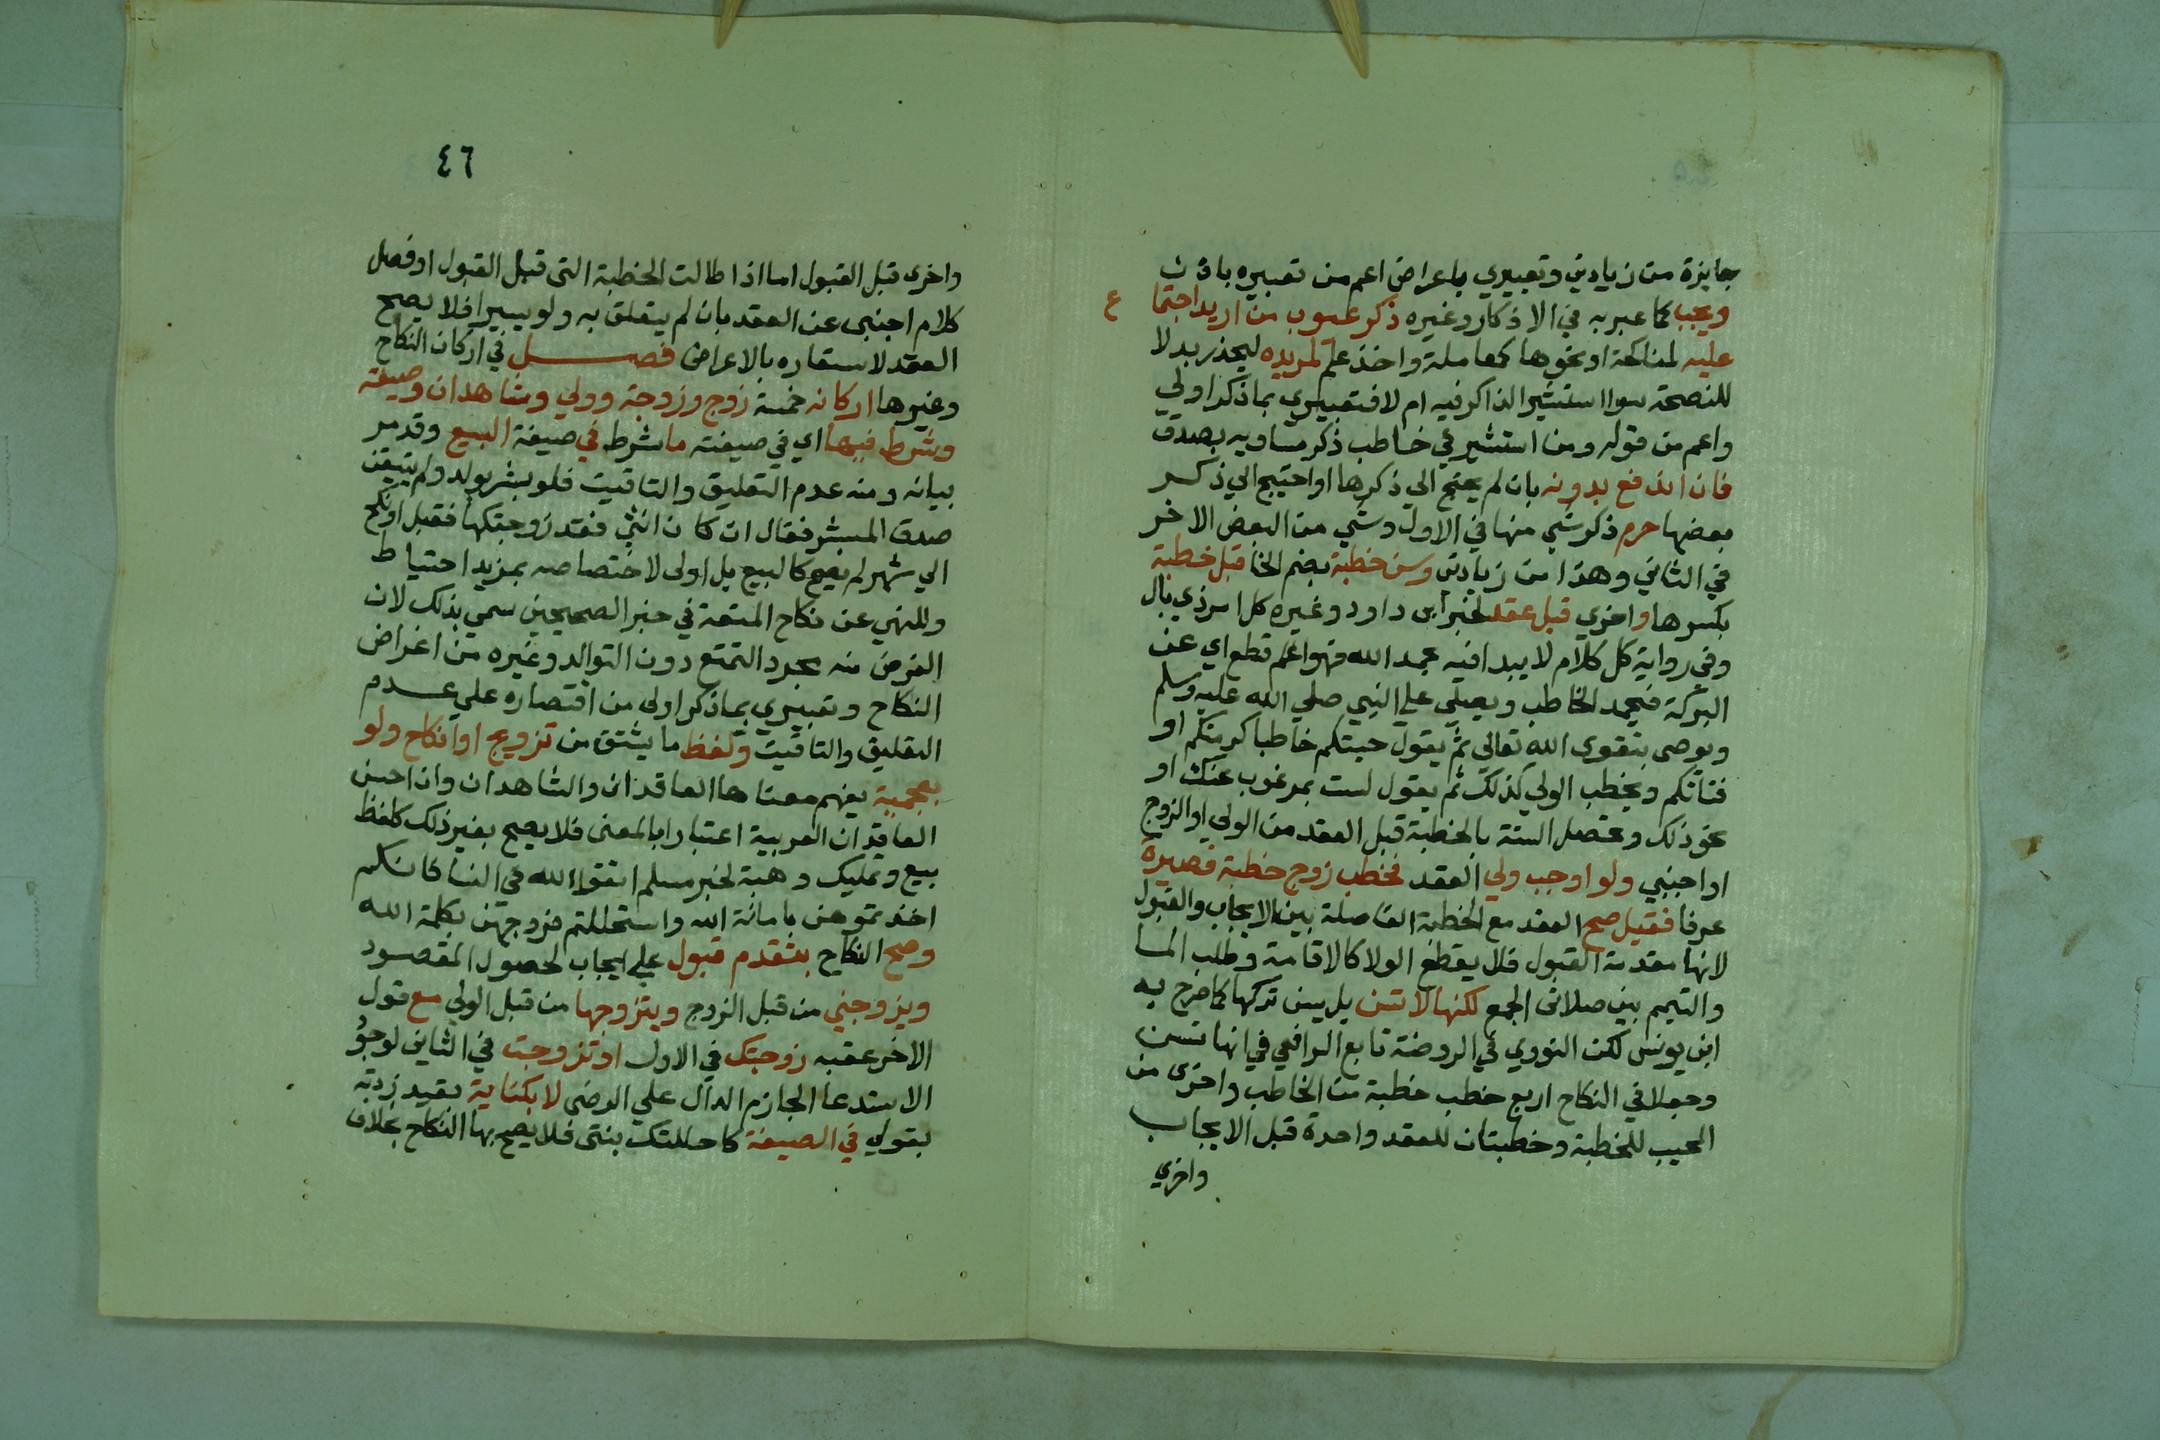 جايزة من زيادتي وتعبيري باعراض اعم من تعبيره باذن
ويجب كما عبر به في الاذكار وغيره ذكر عيوب من اريد اجتما ع
عليه لمناكحة او نحوها كمعاملة واخذ علم لمريده ليحذر بدلا
للنصحة سوا استشير الذاكر فيه ام لا فتعبيري بما ذكر اولي
واعم من قوله ومن استشير في خاطب ذكر مساويه بصدق
فان اندفع بدونه بان لم يحتج الي ذكرها او احتيج الي ذكر
بعضها حرم ذكر شي منها في الاول وشي من البعض الاخر
في الثاني وهذا من زيادتي وسن خطبة بضم الخا قبل خطبة
بكسرها واخري قبل عقد لخبر ابي داود وغيره كل امر ذي بال
وفي رواية كل كلام لا يبدا فيه بحمد الله فهو اقطع اي عن
البركة فيحمد الخاطب ويصلي علي النبي صلي الله عليه وسلم
ويوصي بتقوي الله تعالي ثم يقول جيتكم خاطبا كريمتكم او
فتاتكم ويخطب الولي كذلك ثم يقول لست بمرغوب عنك او
نحو ذلك وتحصل السنة بالخطبة قبل العقد من الولي او الزوج
او اجنبي ولو اوجب ولي العقد فخطب زوج خطبة قصيرة
عرفا فقبل صح العقد مع الخطبة الفاصلة بين الايجاب والقبول
لانها مقدمة القبول فلا يقطع الولا كالاقامة وطلب الما
والتيمم بين صلاتي الجمع لكنها لا تسن بل يسن تركها كما صرح به
ابن يونس لكن النووي في الروضة تابع الرافعي في انها تسن
وجعلا في النكاح اربع خطب خطبة من الخاطب واخري من
المجيب للخطبة وخطبتان للعقد واحدة قبل الايجاب
واخري
٤٦
واخري قبل القبول اما اذا طالت الخطبة التي قبل القبول او فصل
كلام اجنبي عن العقد بان لم يتعلق به ولو يسيرا فلا يصح
العقد لاشعاره بالاعراض فصل في اركان النكاح
وغيرها اركانه خمسة زوج وزوجة وولي وشاهدان وصيغة
وشرط فيها اي في صيغته ما شرط في صيغة البيع وقد مر
بيانه ومنه عدم التعليق والتاقيت فلو بشر بولد ولم يتيقن
صدق المبشر فقال ان كان انثي فقد زوجتكها فقبل او نكح
الي شهر لم يصح كالبيع بل اولي لاختصاصه بمزيد احتياط
وللنهي عن نكاح المتعة في خبر الصحيحين سمي بذلك لان
الغرض منه مجرد التمتع دون التوالد وغيره من اغراض
النكاح وتعبيري بما ذكر اولي من اقتصاره علي عدم
التعليق والتاقيت ولفظ ما يشتق من تزويج او انكاح ولو
بعجمية يفهم معناها العاقدان والشاهدان وان احسن
العاقدان العربية اعتبارا بالمعني فلا يصح بغير ذلك كلفظ
بيع وتمليك وهبة لخبر مسلم اتقوا الله في النسا فانكم
اخذتموهن بامانة الله واستحللتم فروجهن بكلمة الله
وصح النكاح بتقدم قبول علي ايجاب لحصول المقصود
وبزوجني من قبل الزوج وبتزوجها من قبل الولي مع قول
الاخر عقبه زوجتك في الاول او تزوجت في الثاني لوجود
الاستدعا الجازم الدال علي الرضي لا بكناية بقيد زدته
بقولي في الصيغة كاحللتك بنتي فلا يصح بها النكاح بخلاف